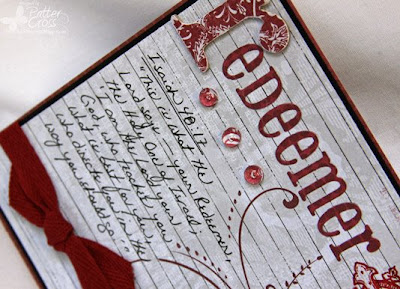 Batter
Cross
Redeemer
Isaiah 48:17
"This is what the
Lord says – your Redeemer,
the Holy One of Israel;
'I am the Lord your
God, who teaches you
what is best for you,
who directs you in the
way you should go.'"